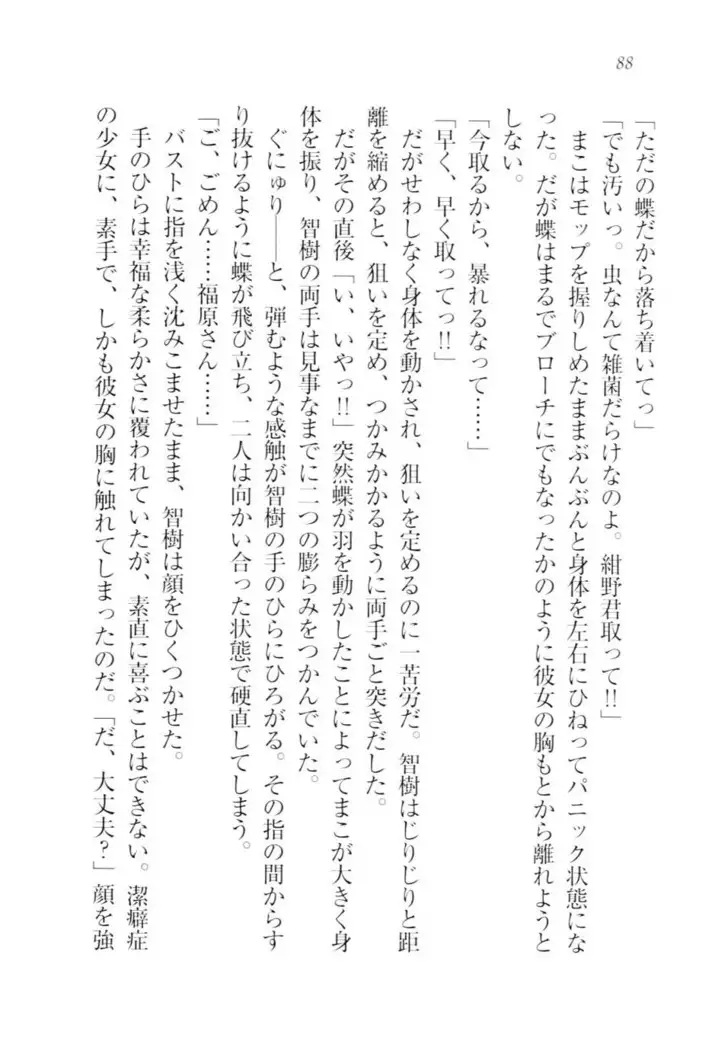 88
「ただの蝶だから落ち着いてっ」
「でも汚いっ。虫なんて雑菌だらけなのよ。紺野君取って!!」
まこはモップを握りしめたままぶんぶんと身体を左右にひねってパニック状態にな
った。だが蝶はまるでブローチにでもなったかのように彼女の胸もとから離れようと
しない。
「今取るから、暴れるなって……」
「早く、早く取ってっ!!」
だがせわしなく身体を動かされ、狙いを定めるのに一苦労だ。智樹はじりじりと距
離を縮めると、狙いを定め、つかみかかるように両手ごと突きだした。
だがその直後「い、いやっ!!」突然蝶が羽を動かしたことによってまこが大きく身
体を振り、智樹の両手は見事なまでに二つの膨らみをつかんでいた。
ぐにゅり――と、弾むような感触が智樹の手のひらにひろがる。その指の間からす
り抜けるように蝶が飛び立ち、二人は向かい合った状態で硬直してしまう。
「ご、ごめん……福原さん……」
バストに指を浅く沈みこませたまま、智樹は顔をひくつかせた。
手のひらは幸福な柔らかさに覆われていたが、素直に喜ぶことはできない。潔癖症
の少女に、素手で、しかも彼女の胸に触れてしまったのだ。「だ、大丈夫?」顔を強